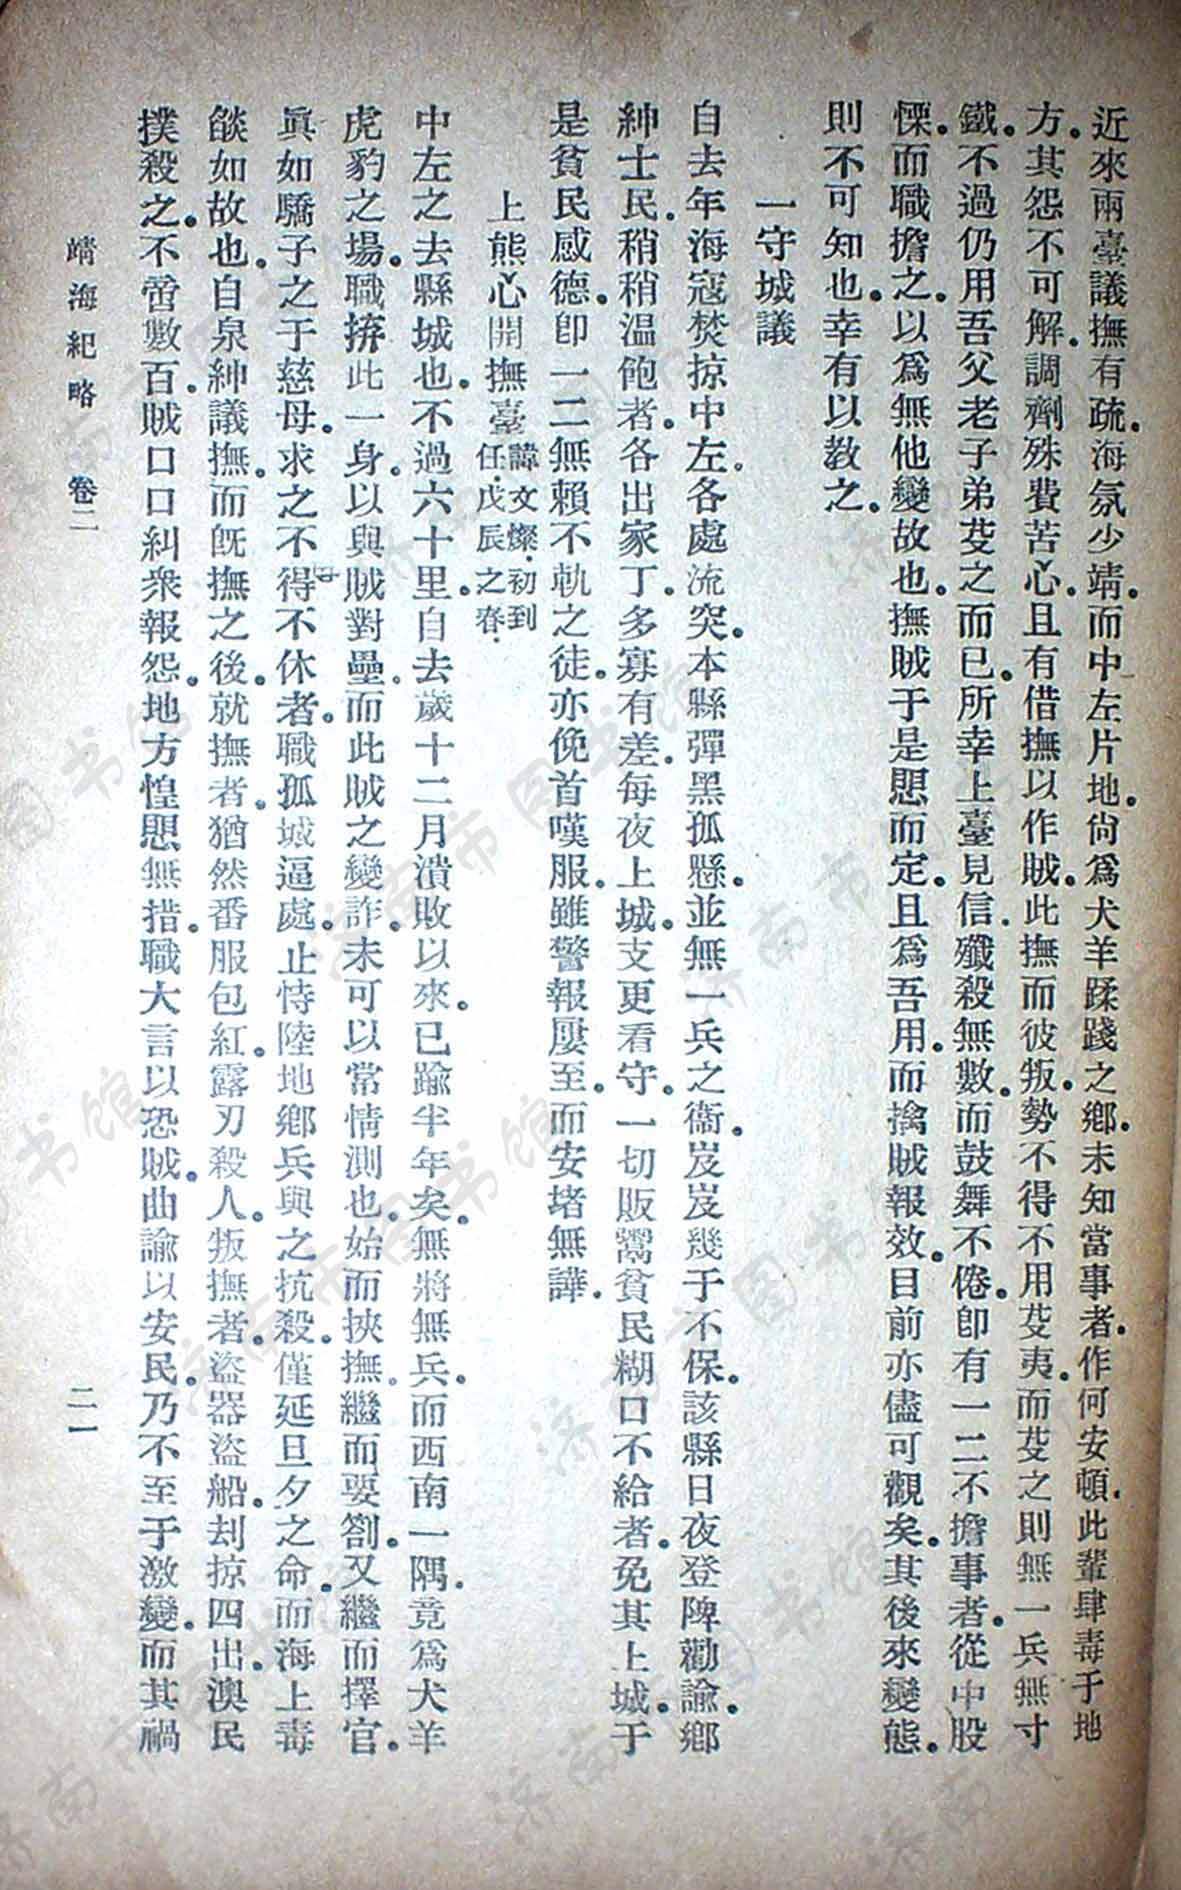 近來兩臺議撫有疏。海氛少靖。而中左片地。尙爲犬羊蹂踐之鄉。未知當事者。作何安頓。此輩肆毒于地
方。其怨不可解。調劑殊費苦心。且有借撫以作賊。此撫而彼叛。勢不得不用芟夷。而芟之則無一兵無寸
鐵。不過仍用吾父老子弟芟之而已。所幸上臺見信。殲殺無數。而鼓舞不倦。卽有一二不擔事者。從中股
慄。而職擔之。以爲無他變故也。撫賊于是愳而定。且爲吾用。而擒賊報效。目前亦儘可觀矣。其後來變態。
則不可知也。幸有以敎之。
一守城議
自去年海寇焚掠中左。各處流突。本縣彈黑孤懸。並無一兵之衞。岌岌幾于不保。該縣日夜登陴勸諭。鄉
紳士民。稍稍溫飽者。各出家丁。多寡有差。每夜上城。支更看守。一切販鬻貧民糊口不給者。免其上城。于
是貧民感德。卽一二無賴不軌之徒。亦俛首嘆服。雖警報屢至。而安堵無譁。
上熊心開撫臺諱文燦。初到任。戊辰之春。
中左之去縣城也。不過六十里。自去歲十二月潰敗以來。已踰半年矣。無將無兵。而西南一隅。竟爲犬羊
虎豹之場。職拚此一身。以與賊對壘。而此賊之變詐。未可以常情測也。始而挾撫。繼而要劄。又繼而擇官。
眞如驕子之于慈母。求之不得不休者。職孤城逼處。止恃陸地鄉兵與之抗殺。僅延旦夕之命。而海上毒
燄如故也。自泉紳議撫。而旣撫之後。就撫者。猶然番服包紅。露刃殺人。叛撫者。盜器盜船。刦掠四出。澳民
撲殺之。不啻數百。賊口口糾衆報怨。地方惶愳無措。職大言以恐賊。曲諭以安民。乃不至于激變。而其禍
靖海紀略 卷二
二一
济南市图书馆